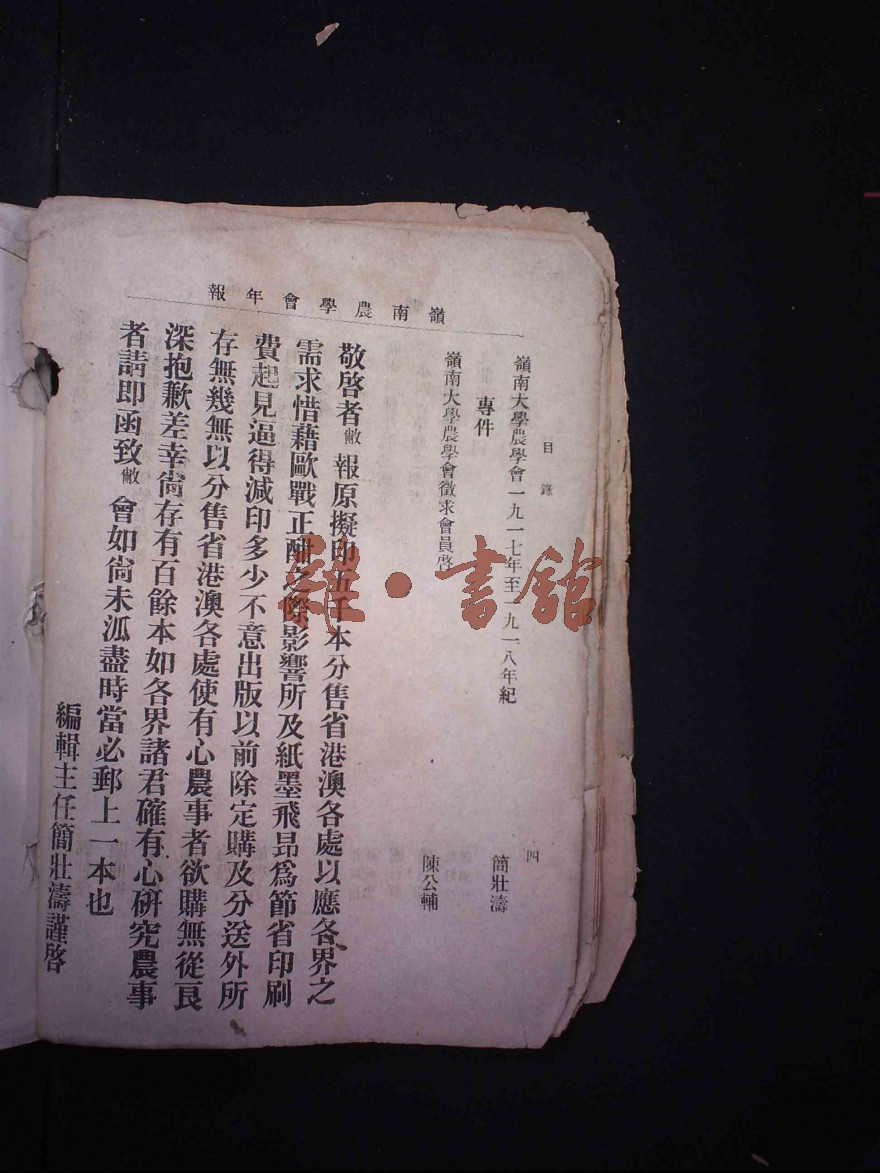 嶺南農學會年報
目錄
四
嶺南大學農學會一九一七年至一九一八年紀
簡壯濤
專件
嶺南大學農學會徵求會員啓
陳公輔
敬啓者敝報原擬印五千本分售省港澳各處以應各界之
需求惜藉歐戰正酣之際影響所及紙墨飛昂爲節省印刷
費起見逼得減印多少不意出版以前除定購及分送外所
存無幾無以分售省港澳各處使有心農事者欲購無從良
深抱歉差幸尙存有百餘本如各界諸君確有心硏究農事
者請即函致敝會如尙未沠盡時當必郵上一本也
編輯主任簡壯濤謹啓
雜·書館